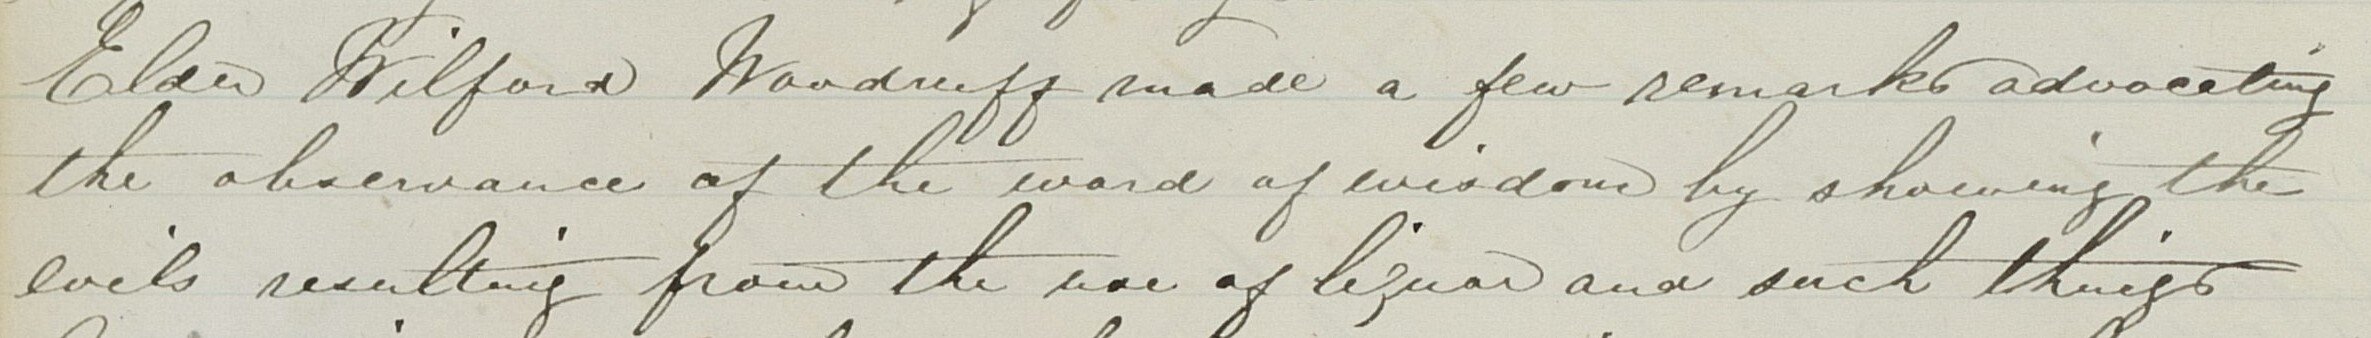 Elder Wilford Woodruff made a few remarks advocating
the observance of the word of wisdom by showing the
evils resulting from the use of liquor and such things